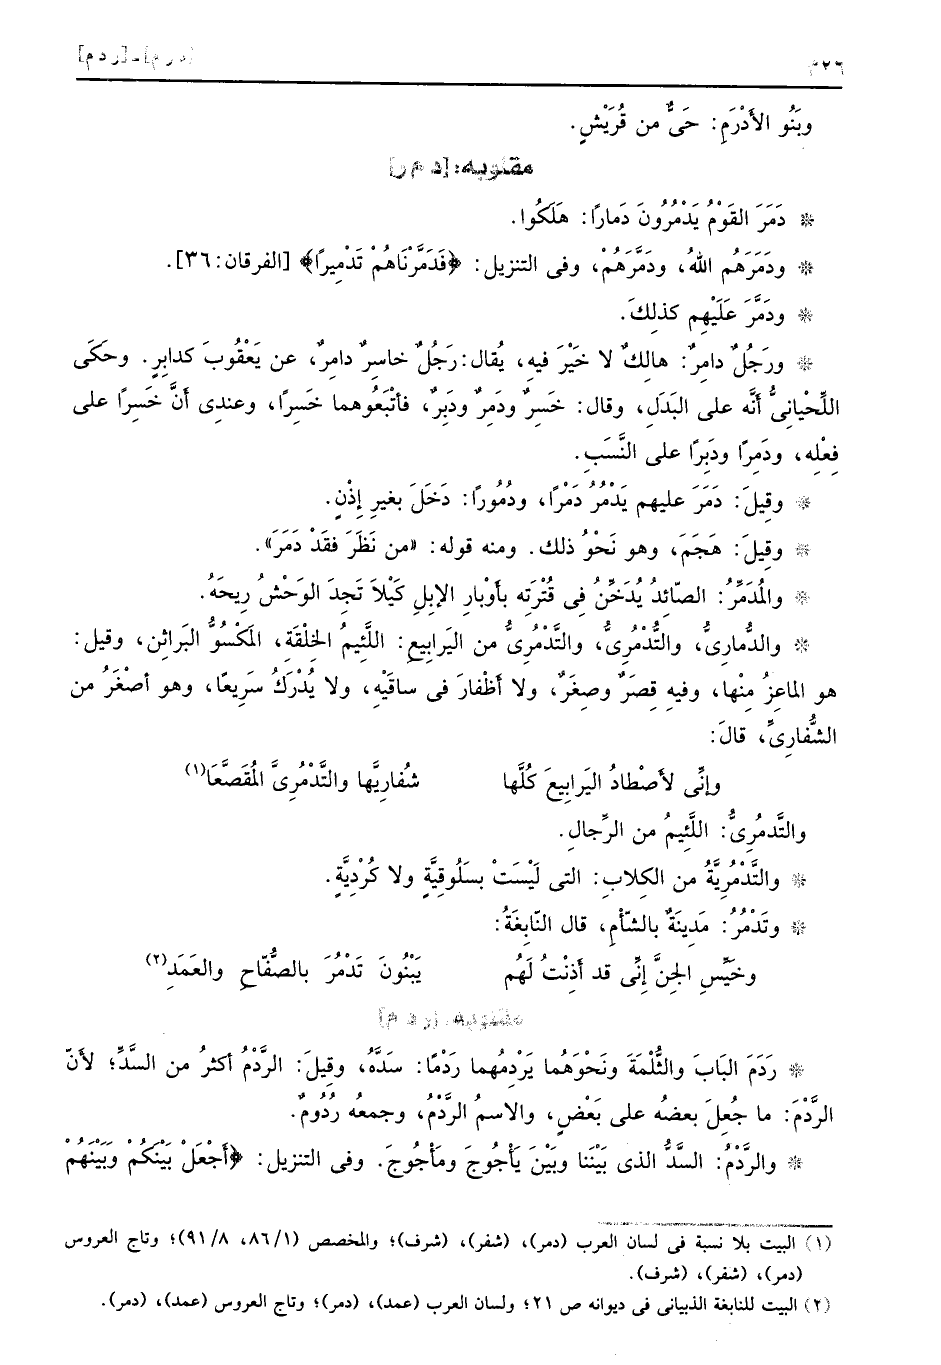 ٣٢٦ [د ر م] ـ [ر د م]
وبَنُو الأَدْرَمِ: حَىٌّ من قُرَيْشٍ.
مقلوبه: [د م ر]
* دَمَرَ القَوْمُ يَدْمُرُونَ دَمارًا: هَلَكُوا.
* ودَمَرَهُم اللهُ، ودَمَّرَهُمْ، وفى التنزيل: ﴿فَدَمَّرْنَاهُمْ تَدْمِيرًا﴾ [الفرقان: ٣٦].
* ودَمَّرَ عَلَيْهِم كذلكَ.
* ورَجُلٌ دامِرٌ: هالكٌ لا خَيْرَ فيه، يُقال: رَجُلٌ خاسرٌ دامِرٌ، عن يَعْقُوبَ كدابِرٍ. وحكَى
اللِّحْيانىُّ أنَّه على البَدَلِ، وقال: خَسِرٌ ودَمِرٌ ودَبِرٌ، فأتْبَعُوهما خَسِرًا، وعندى أنَّ خَسِرًا على
فِعْلِه، ودَمِرًا ودَبِرًا على النَّسَبِ.
* وقيلَ: دَمَرَ عليهم يَدْمُرُ دَمْرًا، ودُمُورًا: دَخَلَ بغيرِ إذْنٍ.
* وقيلَ: هَجَمَ، وهو نَحْوُ ذلك. ومنه قوله: «من نَظَرَ فقَدْ دَمَرَ».
* والمُدَمِّرُ: الصّائدُ يُدَخِّنُ فى قُتْرَتِه بأوْبارِ الإبِلِ كَيْلاَ تَجِدَ الوَحْشُ رِيحَهُ.
* والدُّمارىُّ، والتُّدْمُرىُّ، والتَّدْمُرىُّ من اليَرابيع: اللَّئيمُ الخِلْقَة، المَكْسُوُّ البَراثنِ، وقيل:
هو الماعِزُ مِنْها، وفيهِ قِصَرٌ وصِغَرٌ، ولا أظْفارَ فى ساقَيْهِ، ولا يُدْرَكُ سَرِيعًا، وهو أصْغَرُ من
الشُّفارِىِّ، قالَ:
وإنِّى لأصْطادُ اليَرابِيعَ كُلَّها شُفارِيَّها والتَّدْمُرِىَّ المُقَصَّعَا(١)
والتَّدمُرِىُّ: اللَّئيمُ من الرِّجالِ.
* والتَّدْمُرِيَّةُ من الكلابِ: التى لَيْسَتْ بسَلُوقِيَّةٍ ولا كُرْدِيَّةٍ.
* وتَدْمُرُ: مَدِينَةٌ بالشّأْمِ، قال النّابِغَةُ:
وخَيِّسِ الجِنَّ إنِّى قد أذِنْتُ لَهُم يَبْنُونَ تَدْمُرَ بالصُّفّاحِ والعَمَدِ(٢)
مقلوبه: [ر د م]
* رَدَمَ البَابَ والثُّلْمَةَ ونَحْوَهُما يَرْدِمُهما رَدْمًا: سَدَّهُ، وقيلَ: الرَّدْمُ أكثرُ من السدِّ؛ لأنّ
الرَّدْمَ: ما جُعِلَ بعضُه على بَعْضٍ، والاسمُ الرَّدْمُ، وجمعُه رُدُومٌ.
* والرَّدْمُ: السدُّ الذى بَيْنَنا وبَيْنَ يَأْجُوجَ ومَأْجُوجَ. وفى التنزيل: ﴿أَجْعَلْ بَيْنَكُمْ وَبَيْنَهُمْ
(١) البيت بلا نسبة فى لسان العرب (دمر)، (شفر)، (شرف)؛ والمخصص (٨٦/١، ٩١/٨)؛ وتاج العروس
(دمر)، (شفر)، (شرف).
(٢) البيت للنابغة الذبيانى فى ديوانه ص ٢١؛ ولسان العرب (عمد)، (دمر)؛ وتاج العروس (عمد)، (دمر).